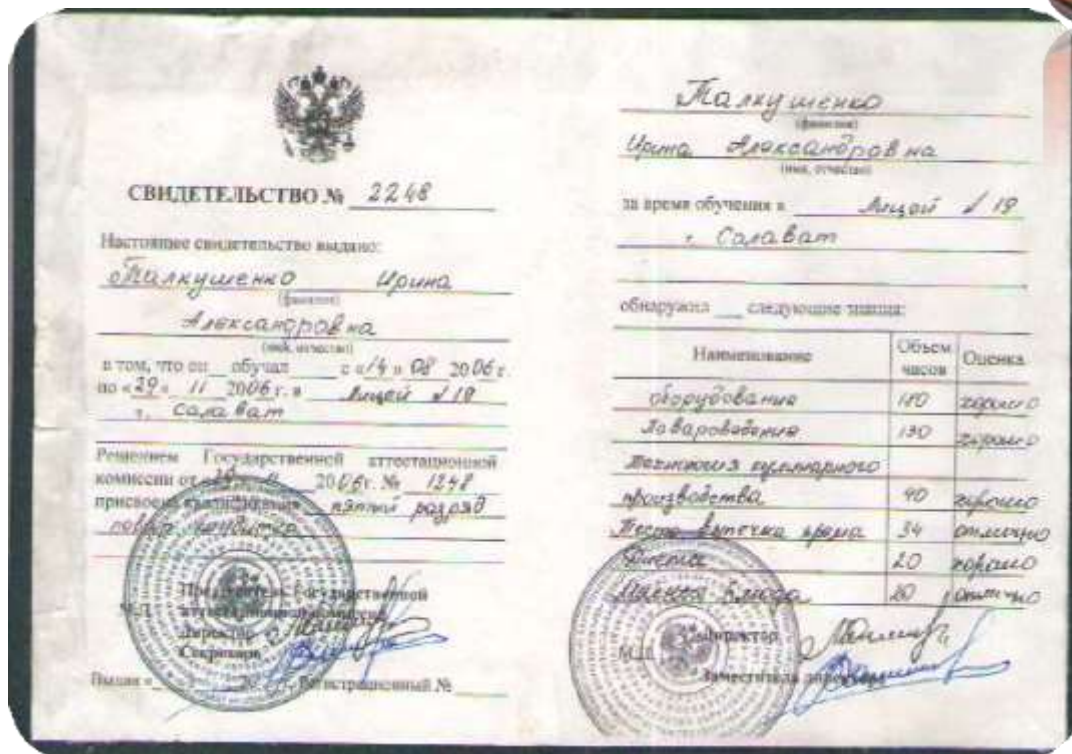 СВИДЕТЕЛЬСТВО № 2248
Настоящее свидетельство выдано:
Талкушенко Ирина
(фамилия)
Александровна
(имя, отчество)
в том, что он__ обучал___ с «14» 08 2006 г.
по «29» 11 2006 г. в Лицей № 19
г. Салават
Решением Государственной аттестационной
комиссии от 2006г. № 1248
присвоена квалификация пятый разряд
повар
Председатель Государственной
М.П. аттестационной комиссии
Директор
Секретарь
Выдан «__ 20 Регистрационный №
Талкушенко
(фамилия)
Ирина Александровна
(имя, отчество)
за время обучения в Лицей № 19
г. Салават
обнаружил ___ следующие знания:
Наименование Объем часов Оценка
оборудование 180 хорошо
Товароведение 130 хорошо
Технология кулинарного
производства 90 хорошо
Тесто выпечка крема 34 отлично
Диета 20 хорошо
блюда отлично
М.П. Директор
Заместитель директора